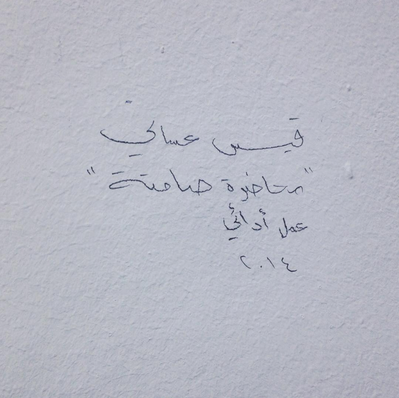 قيس عسالي
"محاضرة صامتة"
عمل أدائي
٢٠١٤